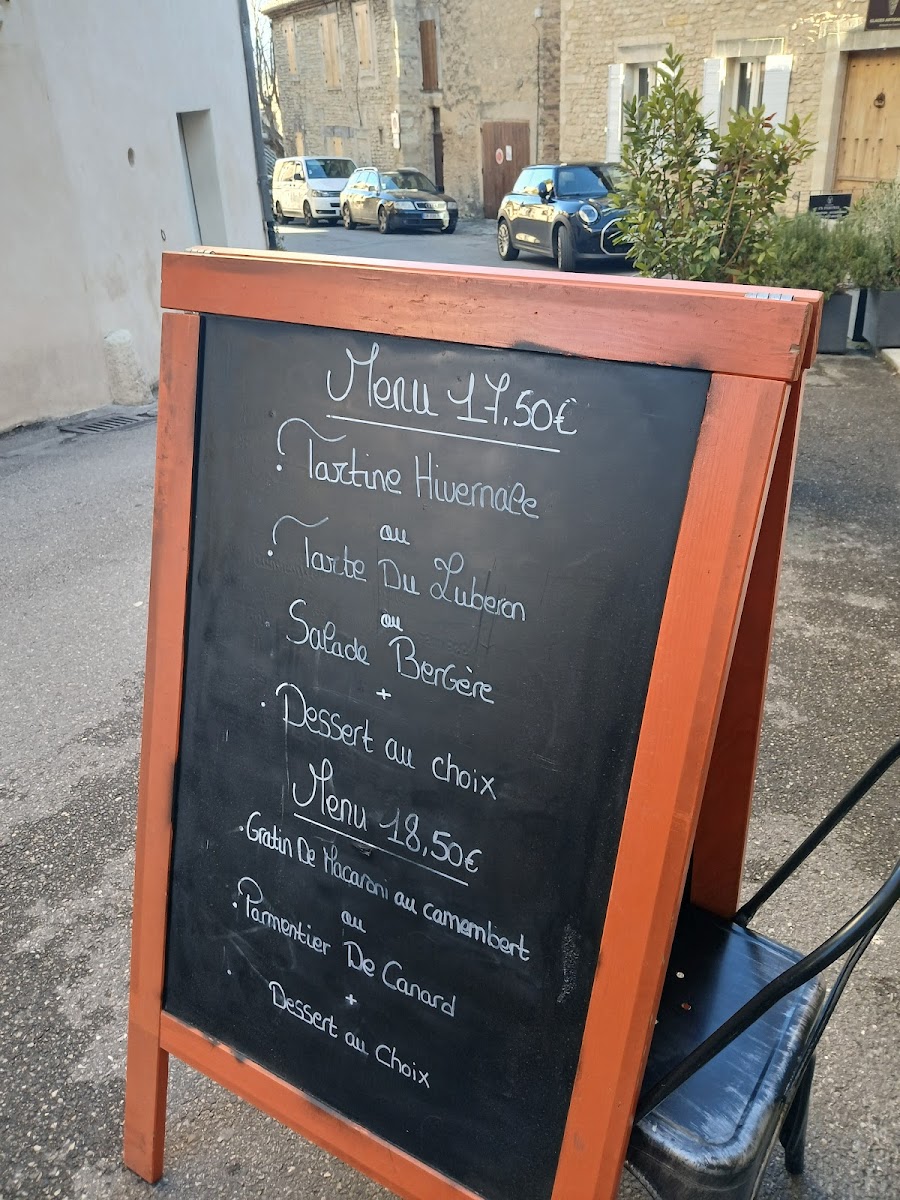 Menu 17,50€
. Tartine Hivernale
ou
. Tarte Du Luberon
ou
. Salade Bergère
+
. Dessert au choix
Menu 18,50€
. Gratin De Macaroni au camembert
ou
. Parmentier De Canard
+
. Dessert au Choix